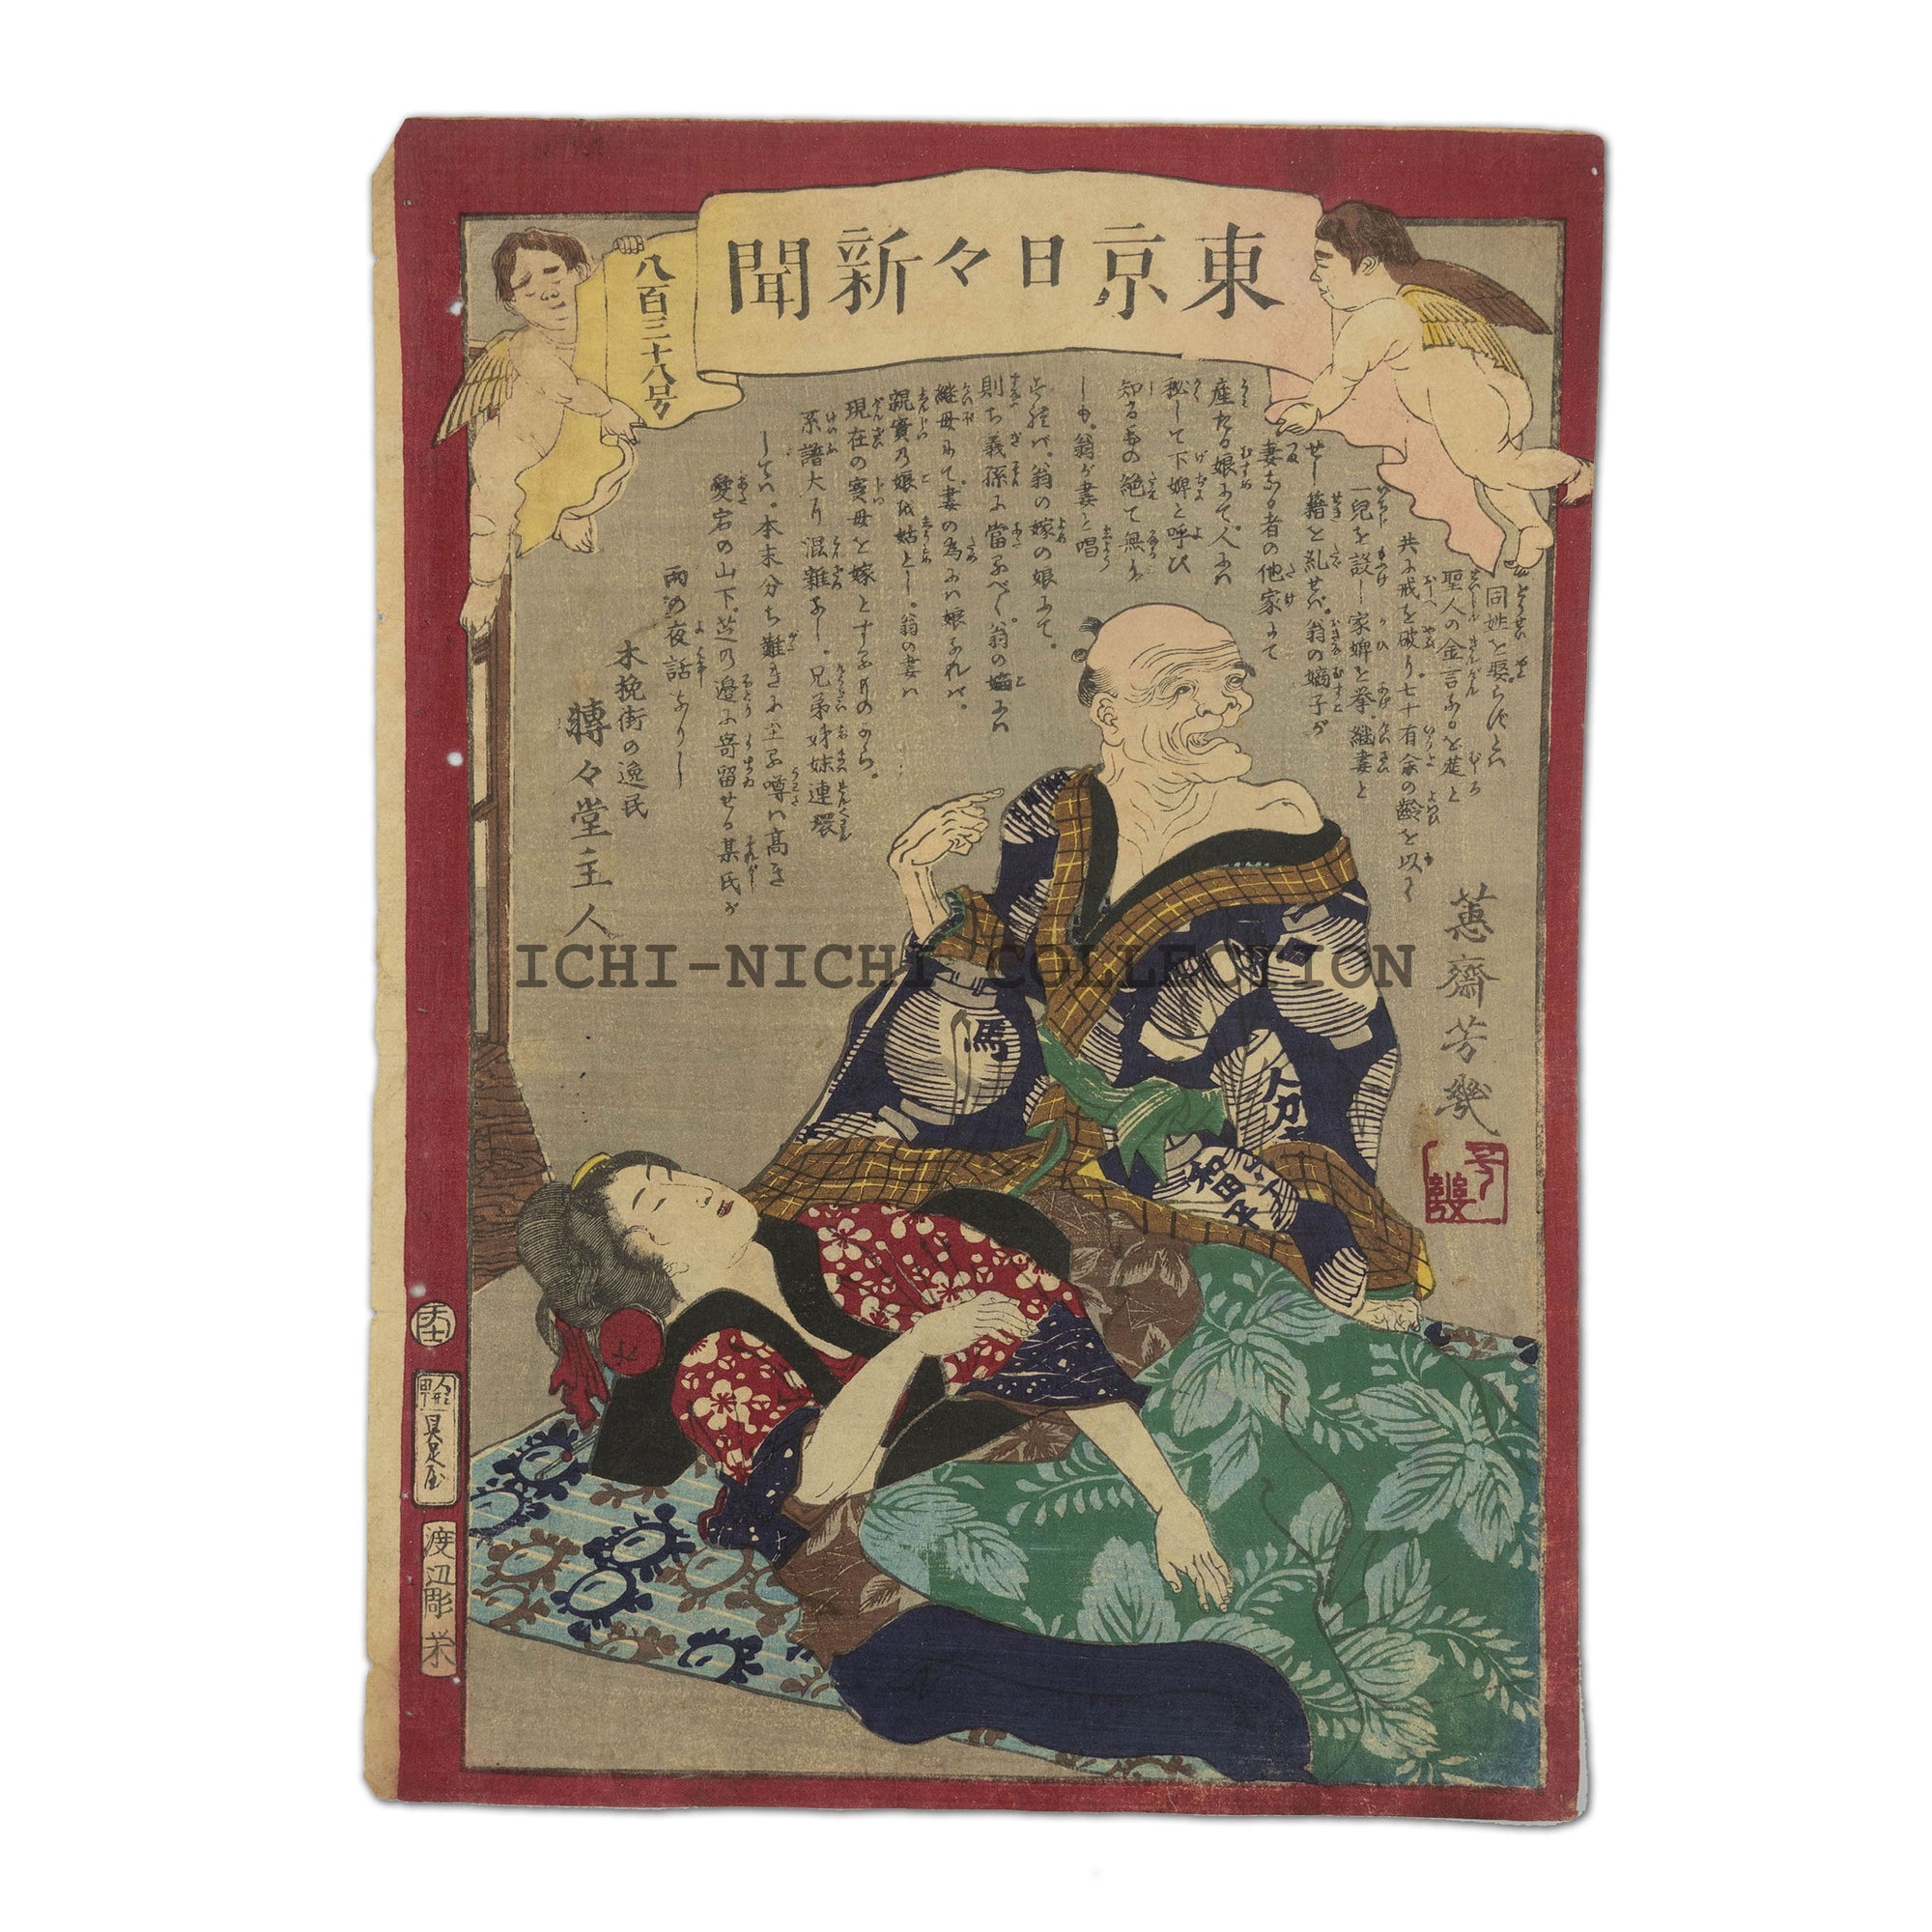 東京日々新聞
八百三十八号
同姓を娶らずとハ
聖人の金言なるを薤と
共に戒を破り七十有余の齢を以て
一児を設し家婢を挙継妻と
せし籍を糺せバ翁の嫡子が
妻なる者の他家にて
産たる娘にて人にハ
秘して下婢と呼び
知るものハ絶て無か
しも翁が妻と唱
翁の嫁の娘にて
則ち義孫に当るべく翁の嫡にハ
継母にて妻の為にハ娘なれバ
親実の娘を姑とし翁の妻ハ
現在の実母を嫁とするものから
系譜大に混雑なし兄弟姉妹連環
してハ本末分ち難きに至る噂ハ高き
愛宕の山下芝の辺に寄留せる某氏が
雨の夜話なりし
木挽街の逸民
轉々堂主人
蕙齋芳幾
馬
人力
和田
具足屋
渡辺彫栄
ICHI-NICHI COLLECTION